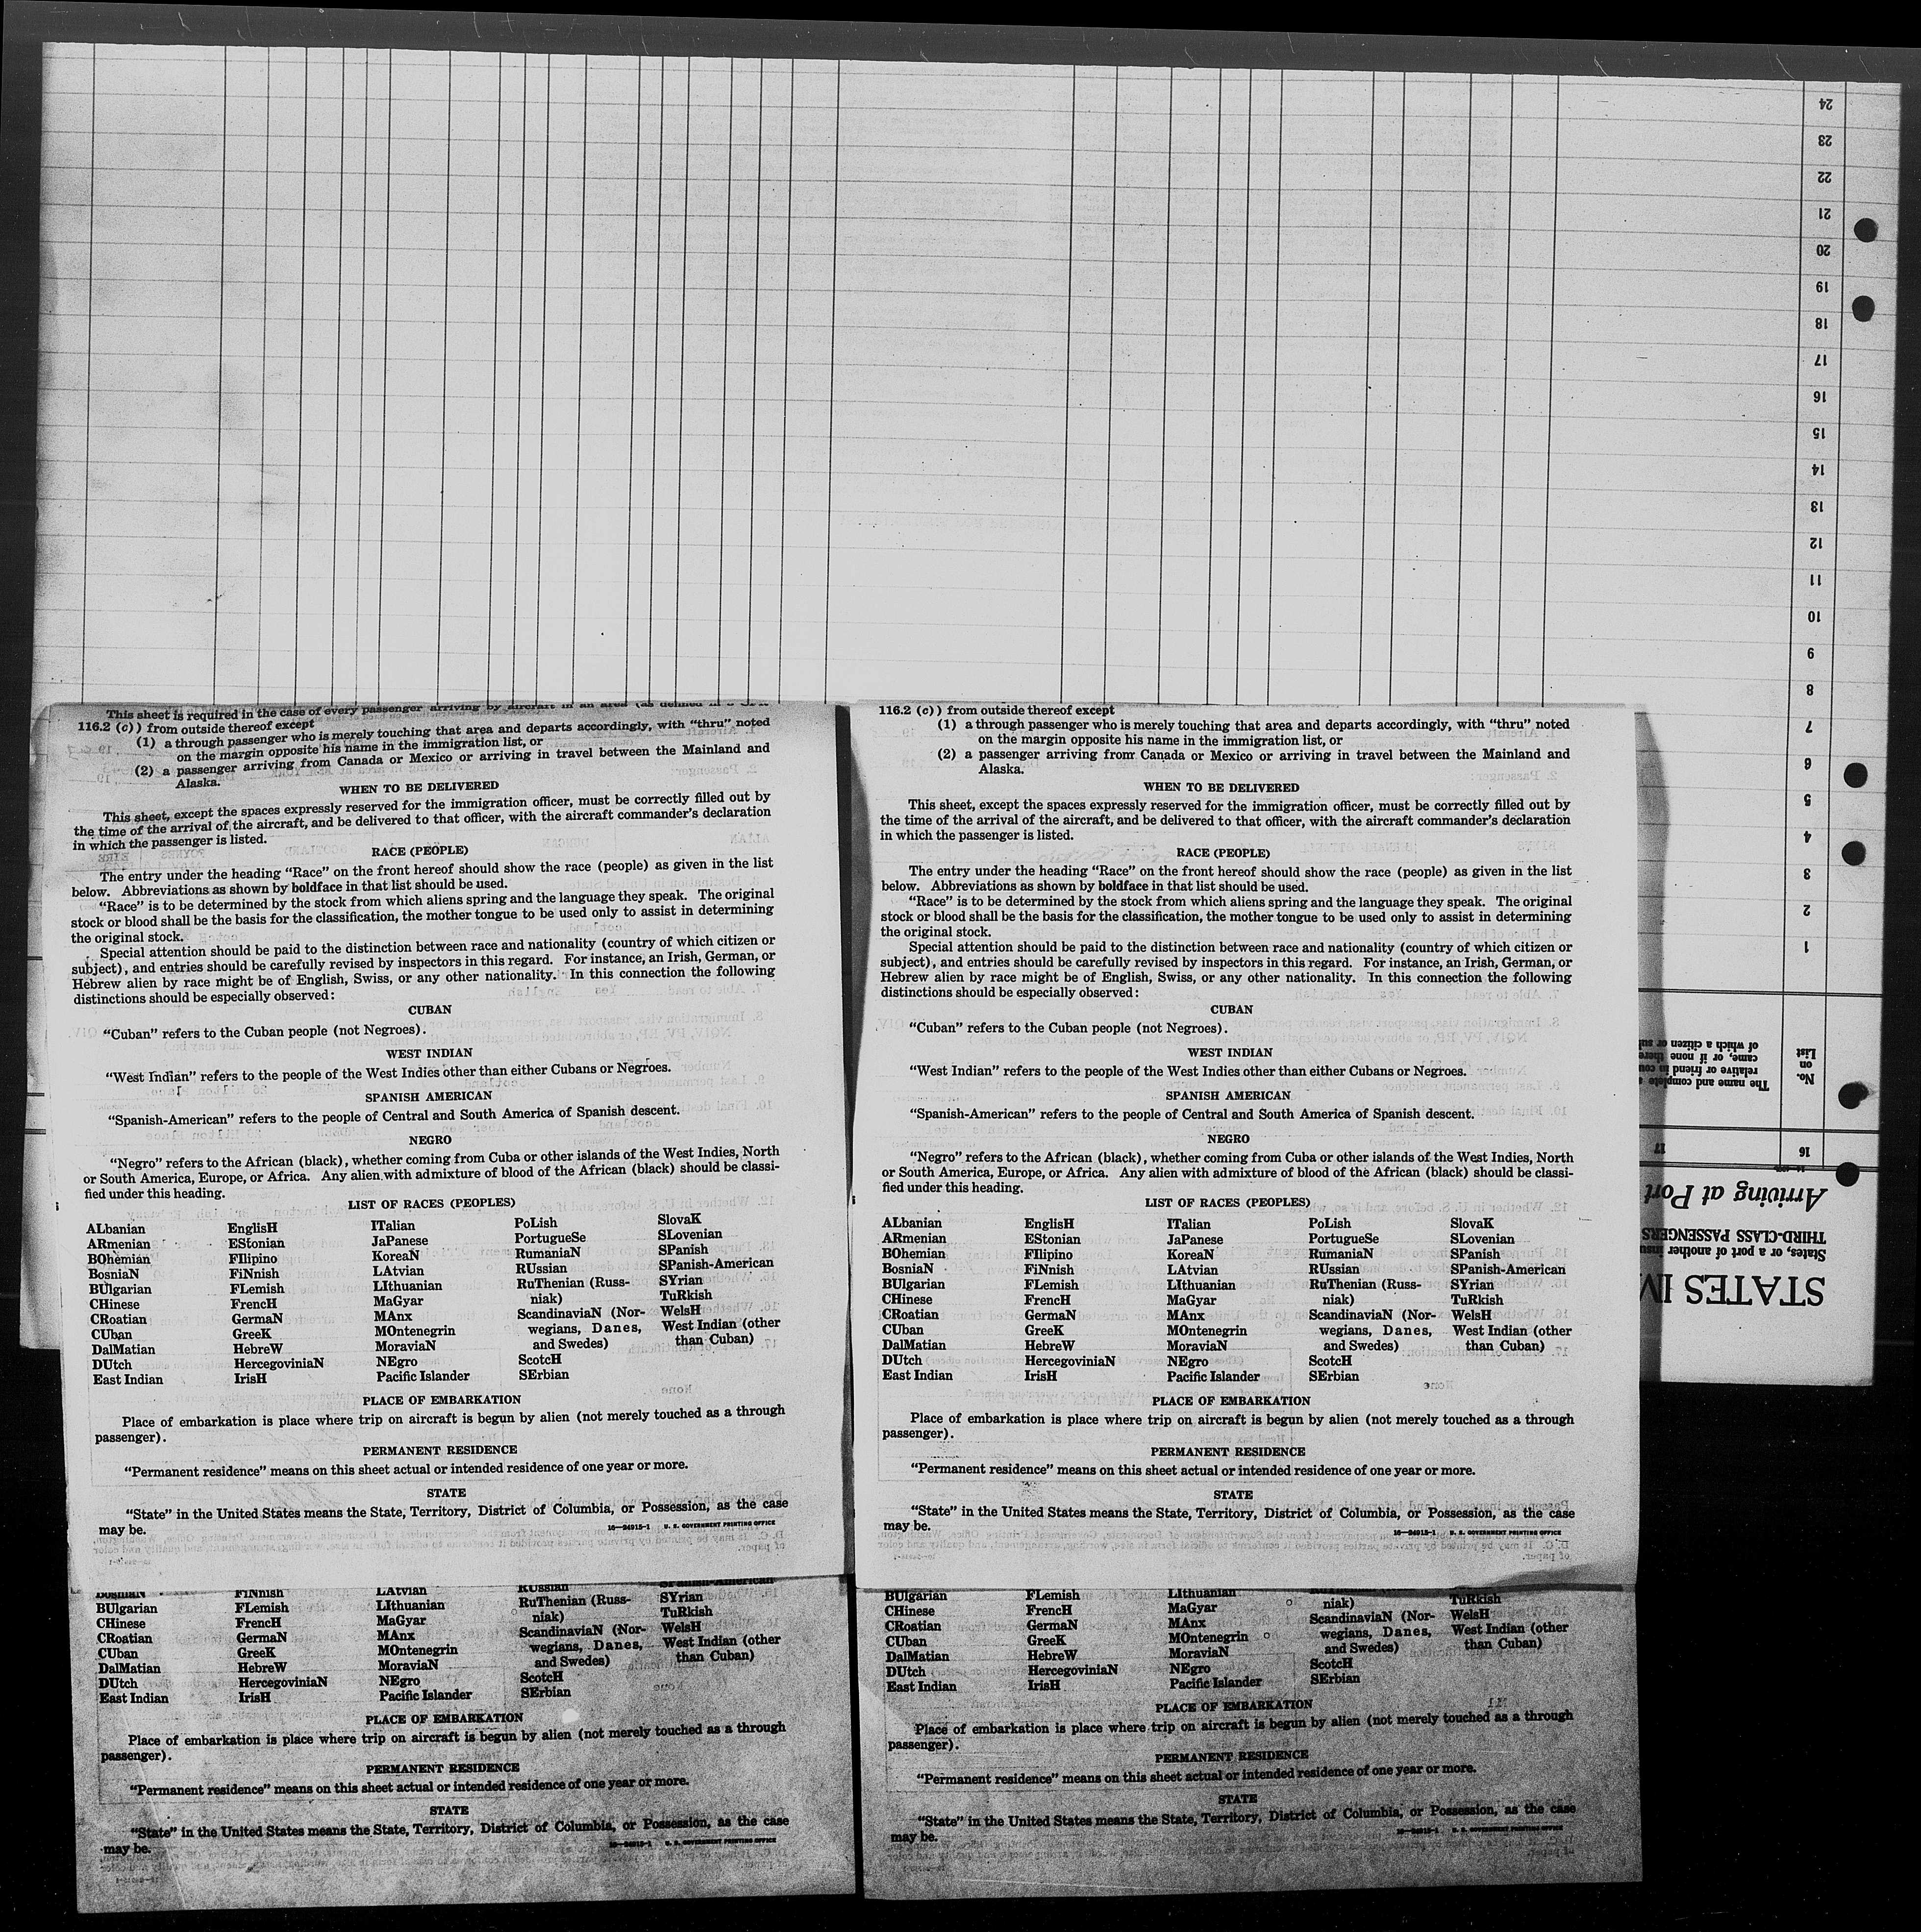 This sheet is required in the case of every passenger arriving by aircraft in an area (as defined in
116.2 (c)) from outside thereof except
(1) a through passenger who is merely touching that area and departs accordingly, with “thru” noted
on the margin opposite his name in the immigration list, or
(2) a passenger arriving from Canada or Mexico or arriving in travel between the Mainland and
Alaska.
WHEN TO BE DELIVERED
This sheet, except the spaces expressly reserved for the immigration officer, must be correctly filled out by
the time of the arrival of the aircraft, and be delivered to that officer, with the aircraft commander's declaration
in which the passenger is listed.
RACE (PEOPLE)
The entry under the heading “Race” on the front hereof should show the race (people) as given in the list
below. Abbreviations as shown by boldface in that list should be used.
“Race” is to be determined by the stock from which aliens spring and the language they speak. The original
stock or blood shall be the basis for the classification, the mother tongue to be used only to assist in determining
the original stock.
Special attention should be paid to the distinction between race and nationality (country of which citizen or
subject), and entries should be carefully revised by inspectors in this regard. For instance, an Irish, German, or
Hebrew alien by race might be of English, Swiss, or any other nationality. In this connection the following
distinctions should be especially observed:
CUBAN
“Cuban” refers to the Cuban people (not Negroes).
WEST INDIAN
“West Indian” refers to the people of the West Indies other than either Cubans or Negroes.
SPANISH AMERICAN
“Spanish-American” refers to the people of Central and South America of Spanish descent.
NEGRO
“Negro” refers to the African (black), whether coming from Cuba or other islands of the West Indies, North
or South America, Europe, or Africa. Any alien with admixture of blood of the African (black) should be classi-
fied under this heading.
LIST OF RACES (PEOPLES)
ALbanian EnglisH ITalian PoLish SlovaK
ARmenian EStonian JaPanese PortugueSe SLovenian
BOhemian FIlipino KoreaN RumaniaN SPanish
BosniaN FiNnish LAtvian RUssian SPanish-American
BUlgarian FLemish LIthuanian RuThenian (Russ- SYrian
CHinese FrencH MaGyar niak) TuRkish
CRoatian GermaN MAnx ScandinaviaN (Nor- WelsH
CUban GreeK MOntenegrin wegians, Danes, West Indian (other
DalMatian HebreW MoraviaN and Swedes) than Cuban)
DUtch HercegoviniaN NEgro ScotcH
East Indian IrisH Pacific Islander SErbian
PLACE OF EMBARKATION
Place of embarkation is place where trip on aircraft is begun by alien (not merely touched as a through
passenger).
PERMANENT RESIDENCE
“Permanent residence” means on this sheet actual or intended residence of one year or more.
STATE
“State” in the United States means the State, Territory, District of Columbia, or Possession, as the case
may be.
16—24915-1 U. S. GOVERNMENT PRINTING OFFICE
BosniaN FiNnish LAtvian RUssian SPanish-American
BUlgarian FLemish LIthuanian RuThenian (Russ- SYrian
CHinese FrencH MaGyar niak) TuRkish
CRoatian GermaN MAnx ScandinaviaN (Nor- WelsH
CUban GreeK MOntenegrin wegians, Danes, West Indian (other
DalMatian HebreW MoraviaN and Swedes) than Cuban)
DUtch HercegoviniaN NEgro ScotcH
East Indian IrisH Pacific Islander SErbian
PLACE OF EMBARKATION
Place of embarkation is place where trip on aircraft is begun by alien (not merely touched as a through
passenger).
PERMANENT RESIDENCE
“Permanent residence” means on this sheet actual or intended residence of one year or more.
STATE
“State” in the United States means the State, Territory, District of Columbia, or Possession, as the case
may be.
16—24915-1 U. S. GOVERNMENT PRINTING OFFICE
116.2 (c)) from outside thereof except
(1) a through passenger who is merely touching that area and departs accordingly, with “thru” noted
on the margin opposite his name in the immigration list, or
(2) a passenger arriving from Canada or Mexico or arriving in travel between the Mainland and
Alaska.
WHEN TO BE DELIVERED
This sheet, except the spaces expressly reserved for the immigration officer, must be correctly filled out by
the time of the arrival of the aircraft, and be delivered to that officer, with the aircraft commander's declaration
in which the passenger is listed.
RACE (PEOPLE)
The entry under the heading “Race” on the front hereof should show the race (people) as given in the list
below. Abbreviations as shown by boldface in that list should be used.
“Race” is to be determined by the stock from which aliens spring and the language they speak. The original
stock or blood shall be the basis for the classification, the mother tongue to be used only to assist in determining
the original stock.
Special attention should be paid to the distinction between race and nationality (country of which citizen or
subject), and entries should be carefully revised by inspectors in this regard. For instance, an Irish, German, or
Hebrew alien by race might be of English, Swiss, or any other nationality. In this connection the following
distinctions should be especially observed:
CUBAN
“Cuban” refers to the Cuban people (not Negroes).
WEST INDIAN
“West Indian” refers to the people of the West Indies other than either Cubans or Negroes.
SPANISH AMERICAN
“Spanish-American” refers to the people of Central and South America of Spanish descent.
NEGRO
“Negro” refers to the African (black), whether coming from Cuba or other islands of the West Indies, North
or South America, Europe, or Africa. Any alien with admixture of blood of the African (black) should be classi-
fied under this heading.
LIST OF RACES (PEOPLES)
ALbanian EnglisH ITalian PoLish SlovaK
ARmenian EStonian JaPanese PortugueSe SLovenian
BOhemian FIlipino KoreaN RumaniaN SPanish
BosniaN FiNnish LAtvian RUssian SPanish-American
BUlgarian FLemish LIthuanian RuThenian (Russ- SYrian
CHinese FrencH MaGyar niak) TuRkish
CRoatian GermaN MAnx ScandinaviaN (Nor- WelsH
CUban GreeK MOntenegrin wegians, Danes, West Indian (other
DalMatian HebreW MoraviaN and Swedes) than Cuban)
DUtch HercegoviniaN NEgro ScotcH
East Indian IrisH Pacific Islander SErbian
PLACE OF EMBARKATION
Place of embarkation is place where trip on aircraft is begun by alien (not merely touched as a through
passenger).
PERMANENT RESIDENCE
“Permanent residence” means on this sheet actual or intended residence of one year or more.
STATE
“State” in the United States means the State, Territory, District of Columbia, or Possession, as the case
may be.
16—24915-1 U. S. GOVERNMENT PRINTING OFFICE
BUlgarian FLemish LIthuanian TuRkish
CHinese FrencH MaGyar niak) WelsH
CRoatian GermaN MAnx ScandinaviaN (Nor- West Indian (other
CUban GreeK MOntenegrin wegians, Danes, than Cuban)
DalMatian HebreW MoraviaN and Swedes)
DUtch HercegoviniaN NEgro ScotcH
East Indian IrisH Pacific Islander SErbian
PLACE OF EMBARKATION
Place of embarkation is place where trip on aircraft is begun by alien (not merely touched as a through
passenger).
PERMANENT RESIDENCE
“Permanent residence” means on this sheet actual or intended residence of one year or more.
STATE
“State” in the United States means the State, Territory, District of Columbia, or Possession, as the case
may be.
16—24915-1 U. S. GOVERNMENT PRINTING OFFICE
STATES IM
States, or a port of another insu
THIRD-CLASS PASSENGERS
Arriving at Port
16 17
No.
on
List
The name and complete
relative or friend in cou
came, or if none there
of which a citizen or sub
1
2
3
4
5
6
7
8
9
10
11
12
13
14
15
16
17
18
19
20
21
22
23
24